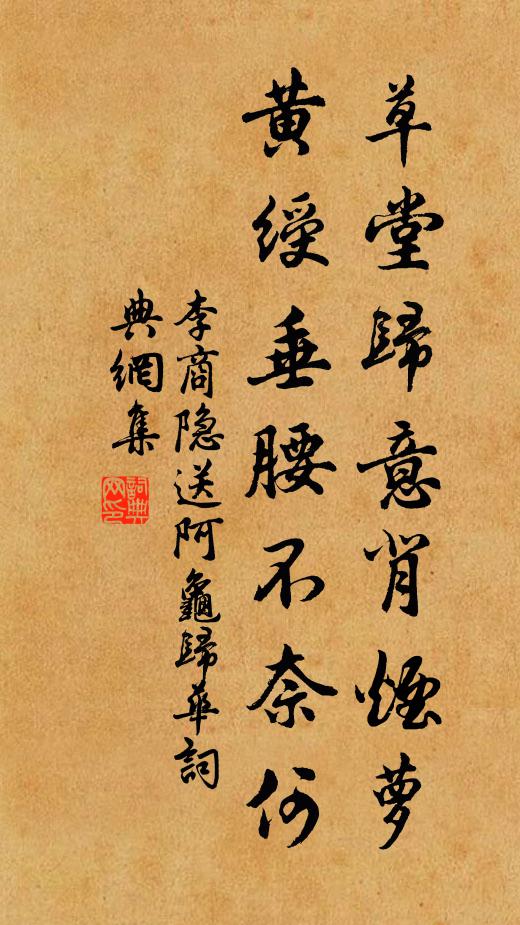 草堂歸意背煙蘿
黃綬垂腰不奈何
李商隐送阿龜歸華詞
典網集
詞典
網印